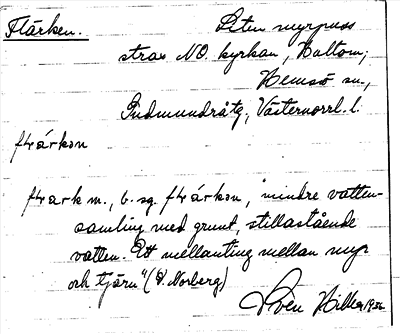 Flärken.
Liten myrpuss
strax NO. kyrkan, Hultom;
Hemsö sn,
Gudmundråtg, Västernorrl. l.
flärkən
flark m., b. sg. flärkən, "mindre vatten-
samling med grunt, stillastående
vatten. Ett mellanting mellan myr
och tjärn" (V. Norberg)
Sven Hillen 1936